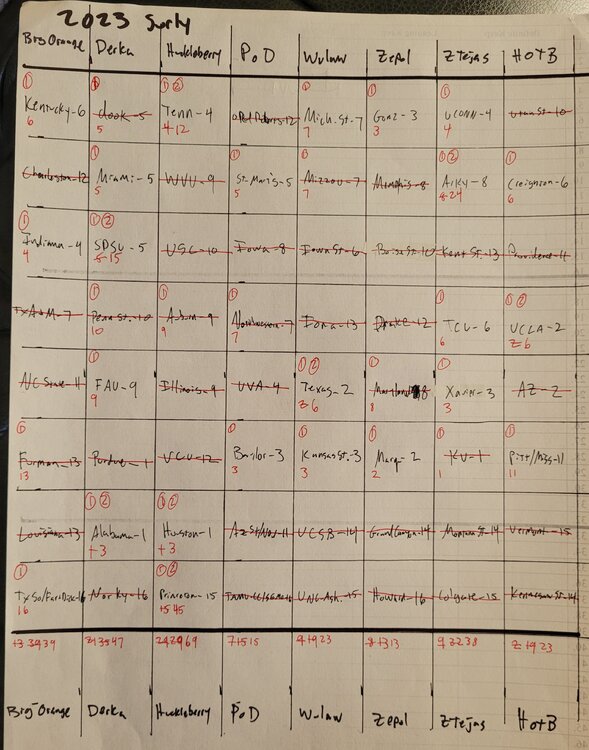 2023 Sorty
Brg Orange Derka Huckleberry PoD Wulaw Zepol ZTejas HOTB
① ① ① ② ① ① ①
Kentucky-6 Cook-5 Tenn-4 Mich. St-7 Gonz-3 UCONN-4 Utah St-10
6 5 4 12 7 3 4
① ① ① ① ② ①
Charleston-12 Miami-5 WVU-9 St-Mari's-5 Mizzou-7 Memphis-8 Arky-8 Creighton-6
5 5 7 8-24 6
① ① ②
Indiana-4 SDSU-5 USC-10 Iowa-8 Iowa St-6 Boise St-10 Kent St.-13 Providence-11
4 5-15
① ① ① ① ① ②
TxA&M-7 Penn St.-10 Auburn-9 Northwestern-7 Iona-13 Drake-12 TCU-6 UCLA-2
10 9 7 6 26
① ① ② ① ①
NC State-11 FAU-9 Illinois-9 UVA-4 Texas-2 Maryland-8 Xavier-3 AZ-2
9 26 8 3
① ① ① ① ① ①
Furman-13 Purdue-1 VCU-12 Baylor-3 Kansas St.-3 Marq-2 KU-1 Pitt/Miss-11
13 3 3 2 1 11
① ② ① ②
Louisiana-13 Alabama-1 Houston-1 AzSt/Nev-11 UCSB-14 Grand Canyon-14 Montana St-14 Vermont-15
+3 +3
① ① ②
TxSo/FarDick-16 Norky-16 Princeton-15 UNC Ash.-15 Howard-16 Colgate-15 Kennesaw St-14
16 15 45
Brg Orange Derka Huckleberry PoD Wulaw Zepol ZTejas HOTB